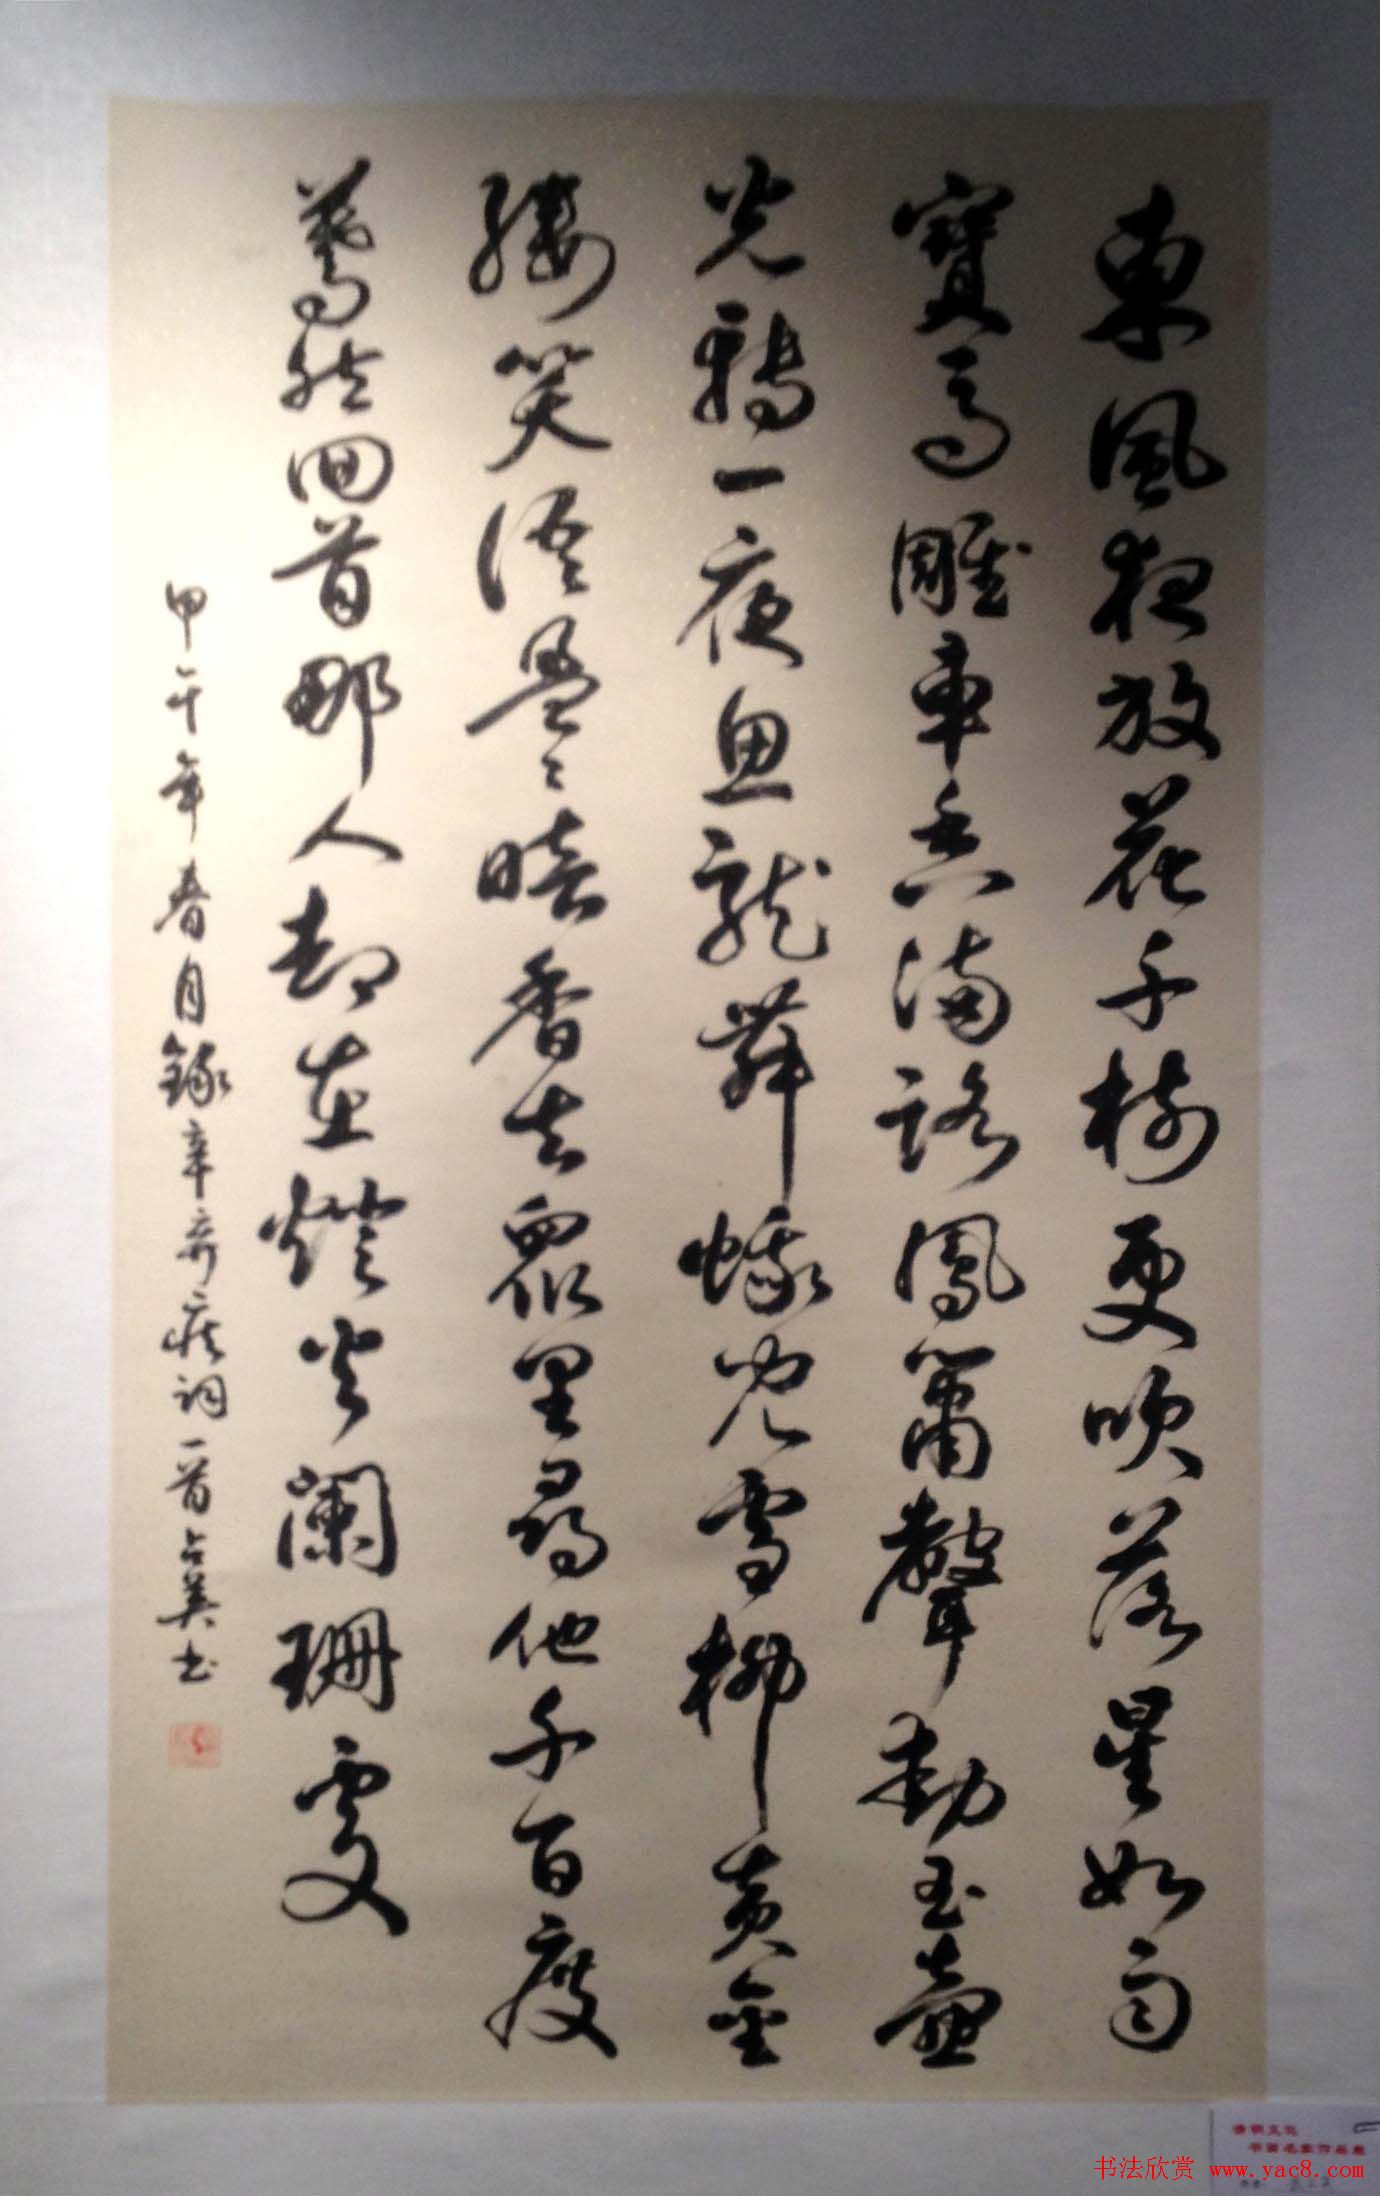 東風夜放花千樹更吹落星如雨
寶馬雕車香滿路鳳簫聲動玉壺
光轉一夜魚龍舞蛾兒雪柳黃金
縷笑語盈々暗香去眾里尋他千百度
驀然回首那人却在燈火闌珊處
甲午年春月錄辛弃疾詞一首占英书
书画名家作品展
书法欣赏 www.yac8.com